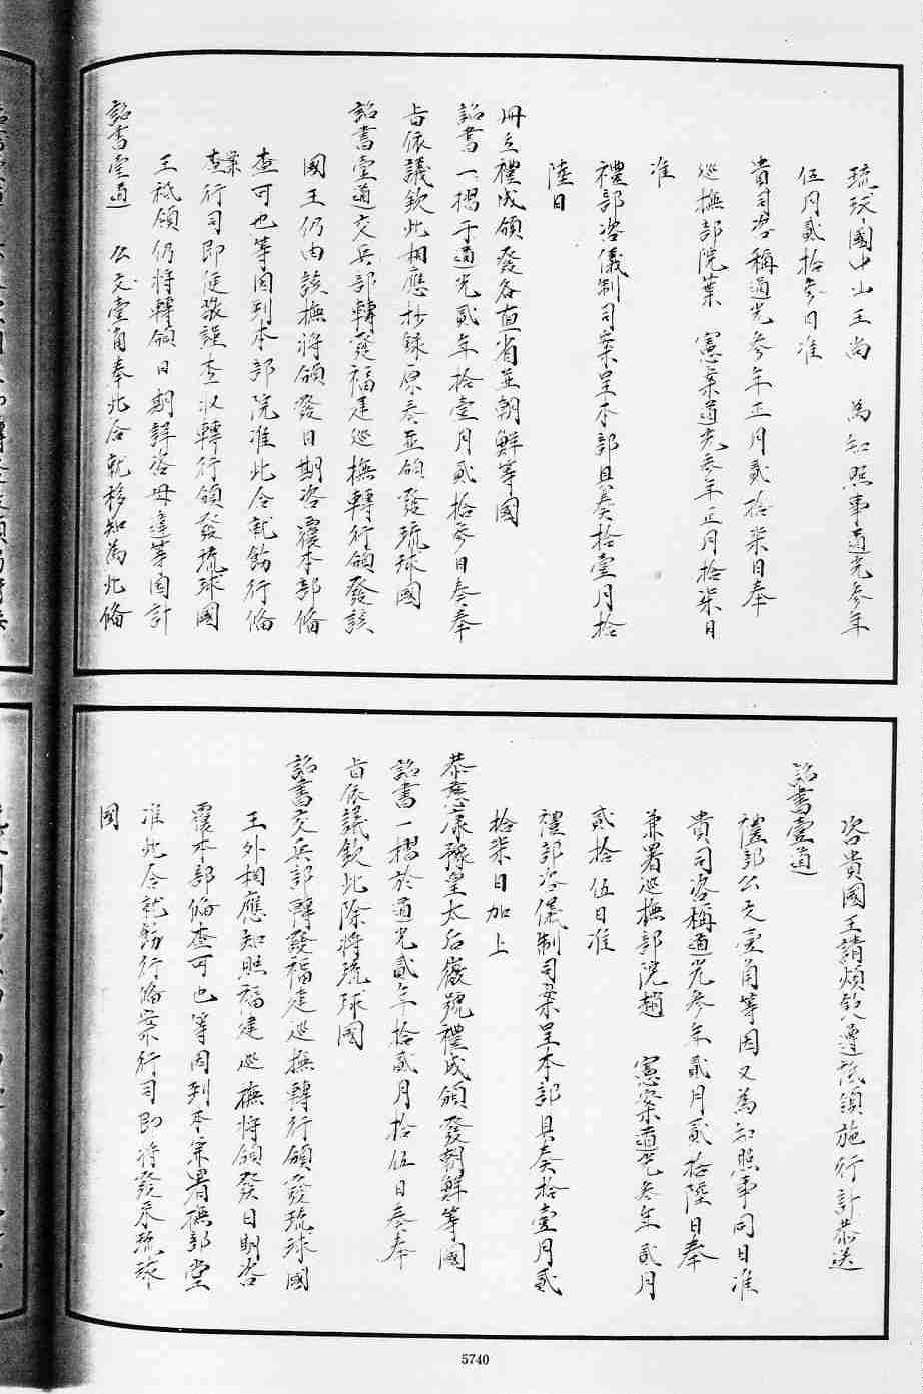 琉球國中山王尚　為知照事道光參年
伍月貳拾參日准
貴司咨稱道光參年正月貳拾柒日奉
巡撫部院葉　憲案道光參年正月拾柒日
准
禮部咨儀制司案呈本部具奏拾壹月拾
陸日
冊立禮成頒發各直省並朝鮮等國
詔書一摺于道光貳年拾壹月貳拾參日奏奉
旨依議欽此相應抄錄原奏並頒發琉球國
詔書壹道交兵部轉發福建巡撫轉行頒發該
國王仍由該撫將頒發日期咨覆本部備
查可也等因到本部院准此合就飭行備
案查行司即便欽謹查收轉行頒發琉球國
王祗領仍將轉頒日期詳咨毋違等因計
詔書壹道　公文壹角奉此合就移知為此備
咨貴國王請煩欽遵祗領施行計恭送
詔書壹道
禮部公文壹角等因又為知照事同日准
貴司咨稱道光參年貳月貳拾陸日奉
兼署巡撫部院趙　憲案道光參年貳月
貳拾伍日准
禮部咨儀制司案呈本部具奏拾壹月貳
拾柒日加上
恭慈康豫皇太后徽號禮成頒發朝鮮等國
詔書一摺於道光貳年拾貳月拾伍日奏奉
旨依議欽此除將琉球國
詔書交兵部轉發福建巡撫轉行頒發琉球國
王外相應知照福建巡撫將頒發日期咨
覆本部備查可也等因到本兼署撫部堂
准此合就飭行備案行司即將發來琉球
國
5740